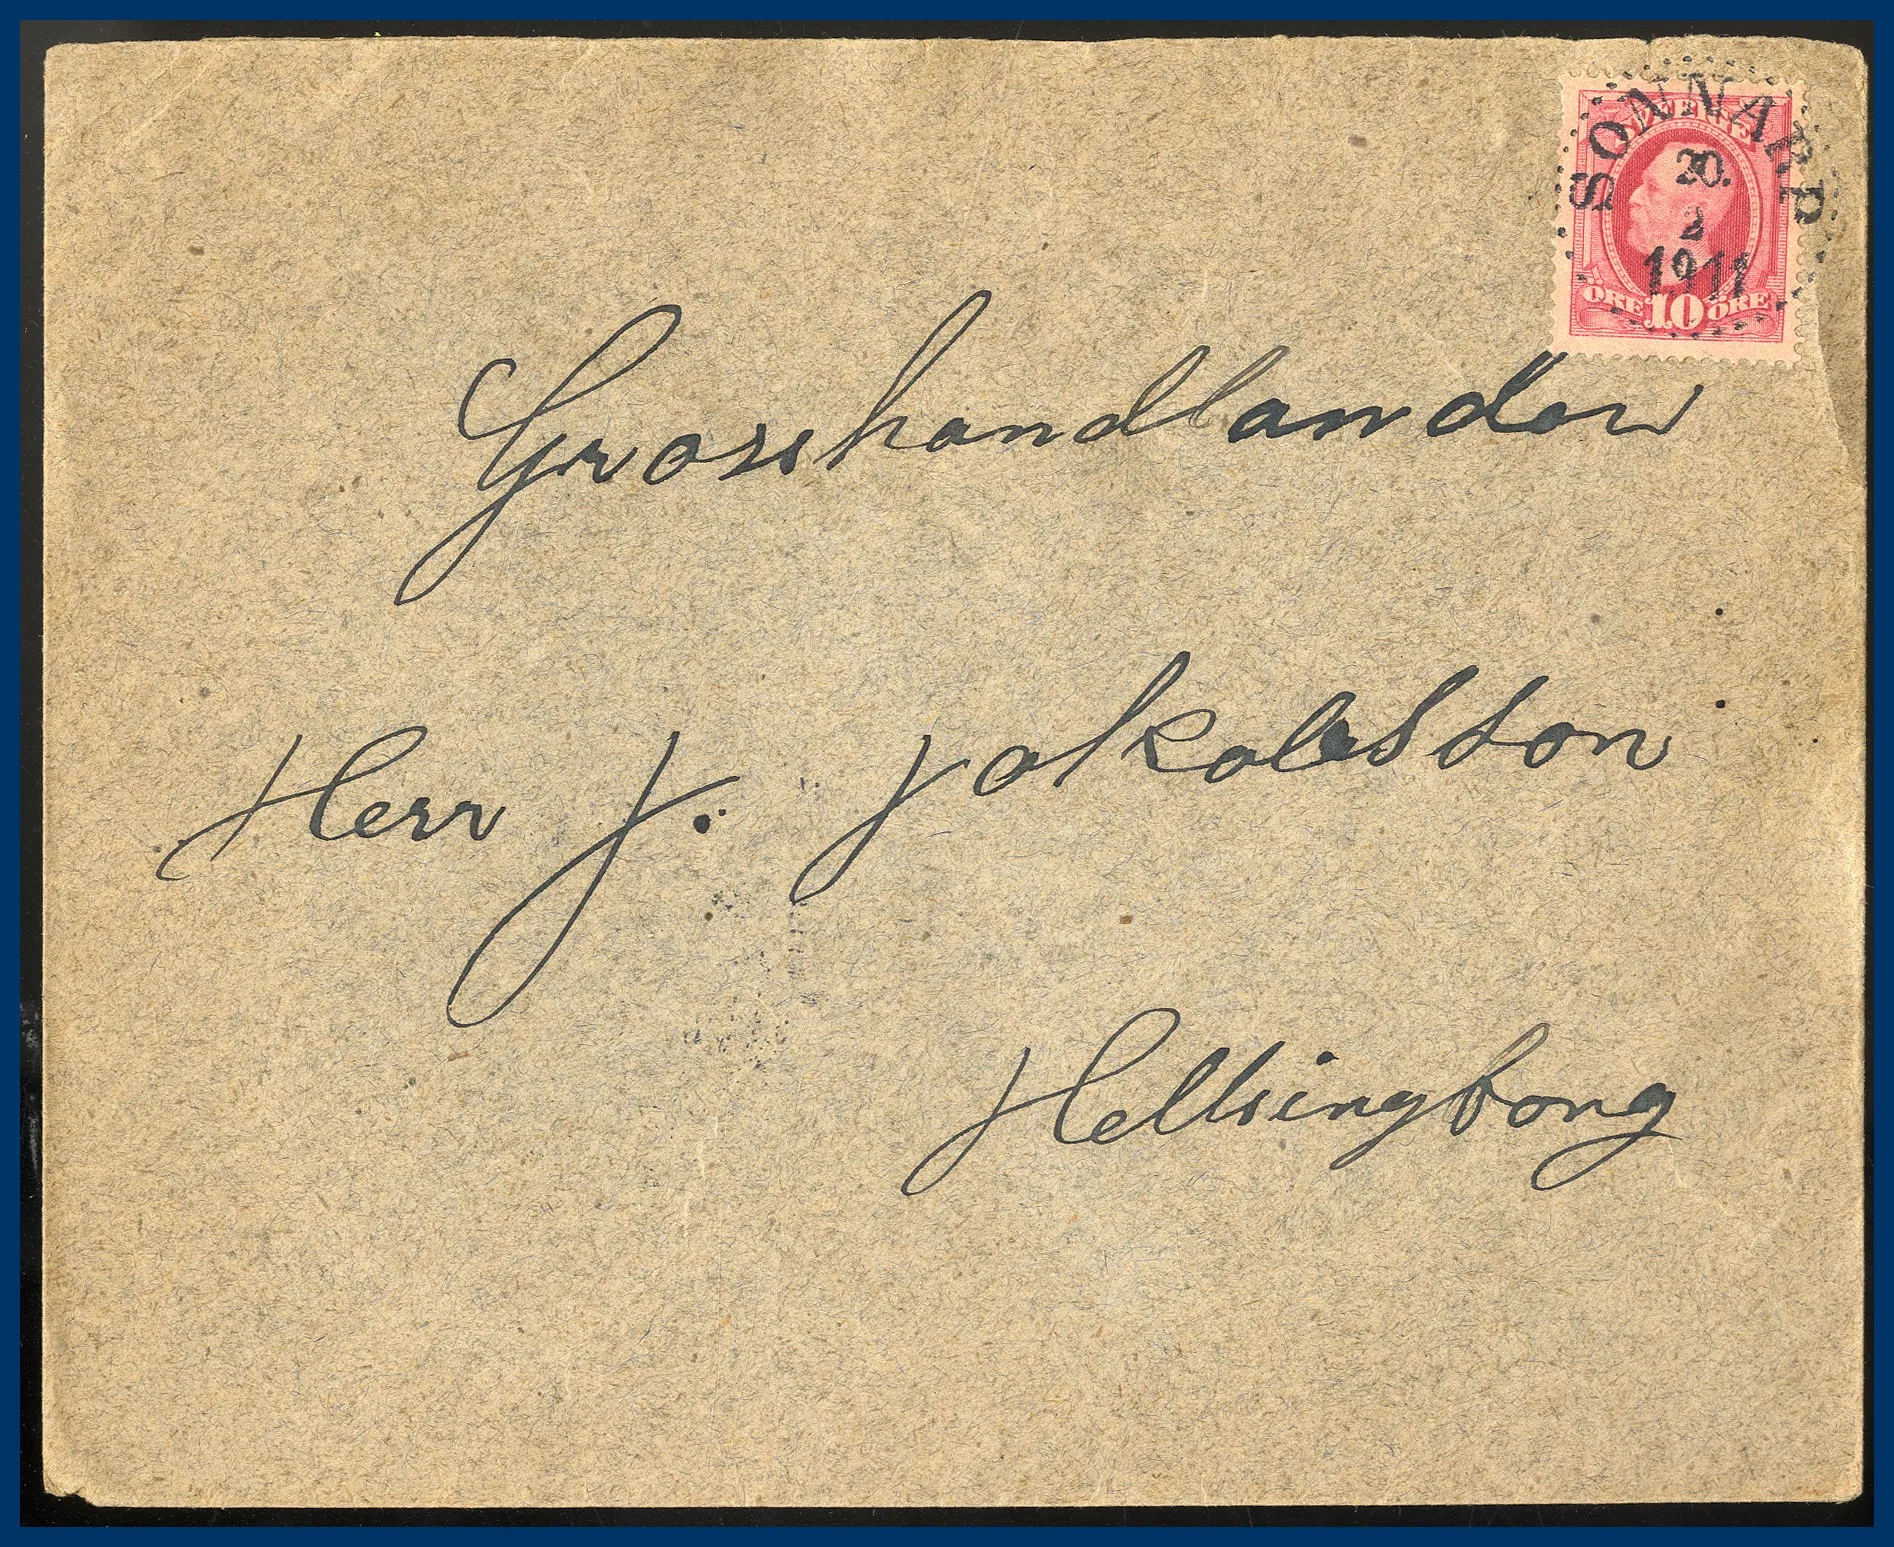 SVERIGE
SONNARP
20.
2
1911
ÖRE 10 ÖRE
Grosshandlanden
Herr J. Jakobsson
Hellsingborg